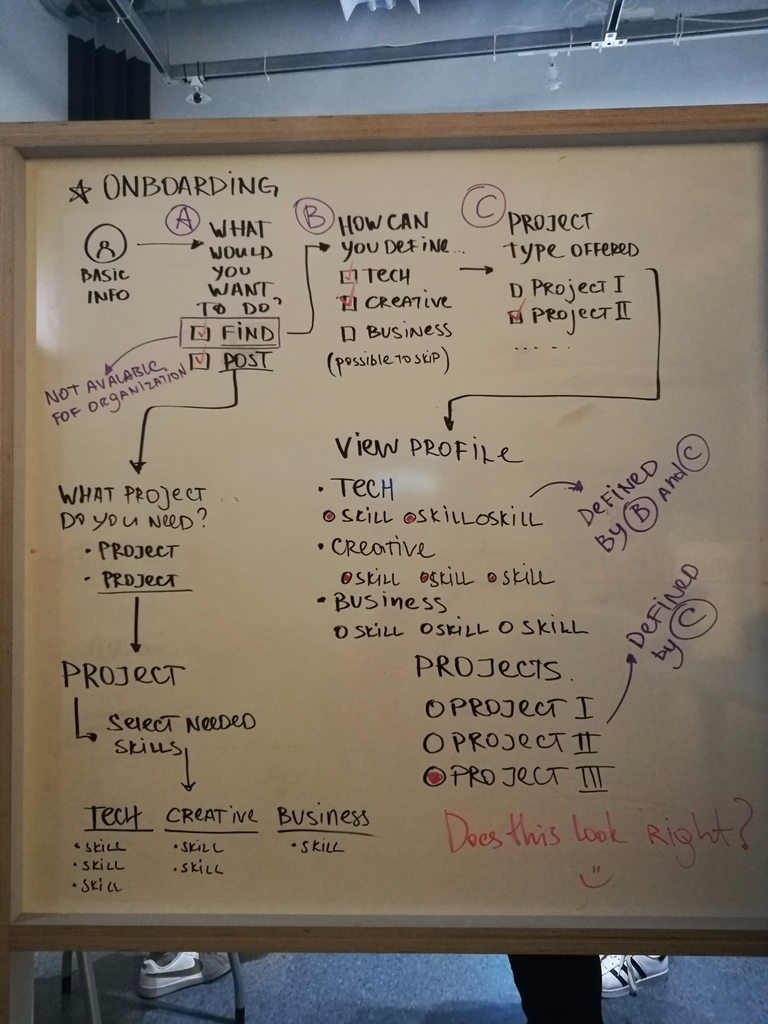 ☆ ONBOARDING
BASIC
INFO
A
WHAT
WOULD
YOU
WANT
TO DO?
FIND
POST
NOT AVALABLE
FOF ORGANIZATION
B
HOW CAN
YOU DEFINE...
TECH
CREATIVE
BUSINESS
(POSSIBLE TO SKIP)
C
PROJECT
TYPE OFFERED
PROJECT I
PROJECT II
.....
WHAT PROJECT
DO YOU NEED?
• PROJECT
• PROJECT
PROJECT
SELECT NEEDED
SKILLS
TECH
• SKILL
• SKILL
• SKILL
CREATIVE
• SKILL
• SKILL
BUSINESS
• SKILL
VIEW PROFILE
• TECH
SKILL SKILL SKILL
• CREATIVE
SKILL SKILL SKILL
• BUSINESS
SKILL SKILL SKILL
DEFINED
By B and C
PROJECTS.
PROJECT I
PROJECT II
PROJECT III
DEFINED
by C
Does this look Right?